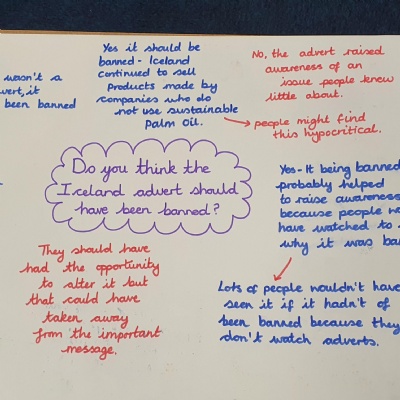 wasn't a
vert, it
been banned
Yes it should be
banned - Iceland
continued to sell
products made by
companies who do
not use sustainable
Palm Oil.
No, the advert raised
awareness of an
issue people knew
little about.
people might find
this hypocritical.
Do you think the
Iceland advert should
have been banned?
Yes - It being banned
probably helped
to raise awareness
because people
have watched to
why it was
Lots of people wouldn't have
seen it if it hadn't of
been banned because they
don't watch adverts.
They should have
had the opportunity
to alter it but
that could have
taken away
from the important
message.